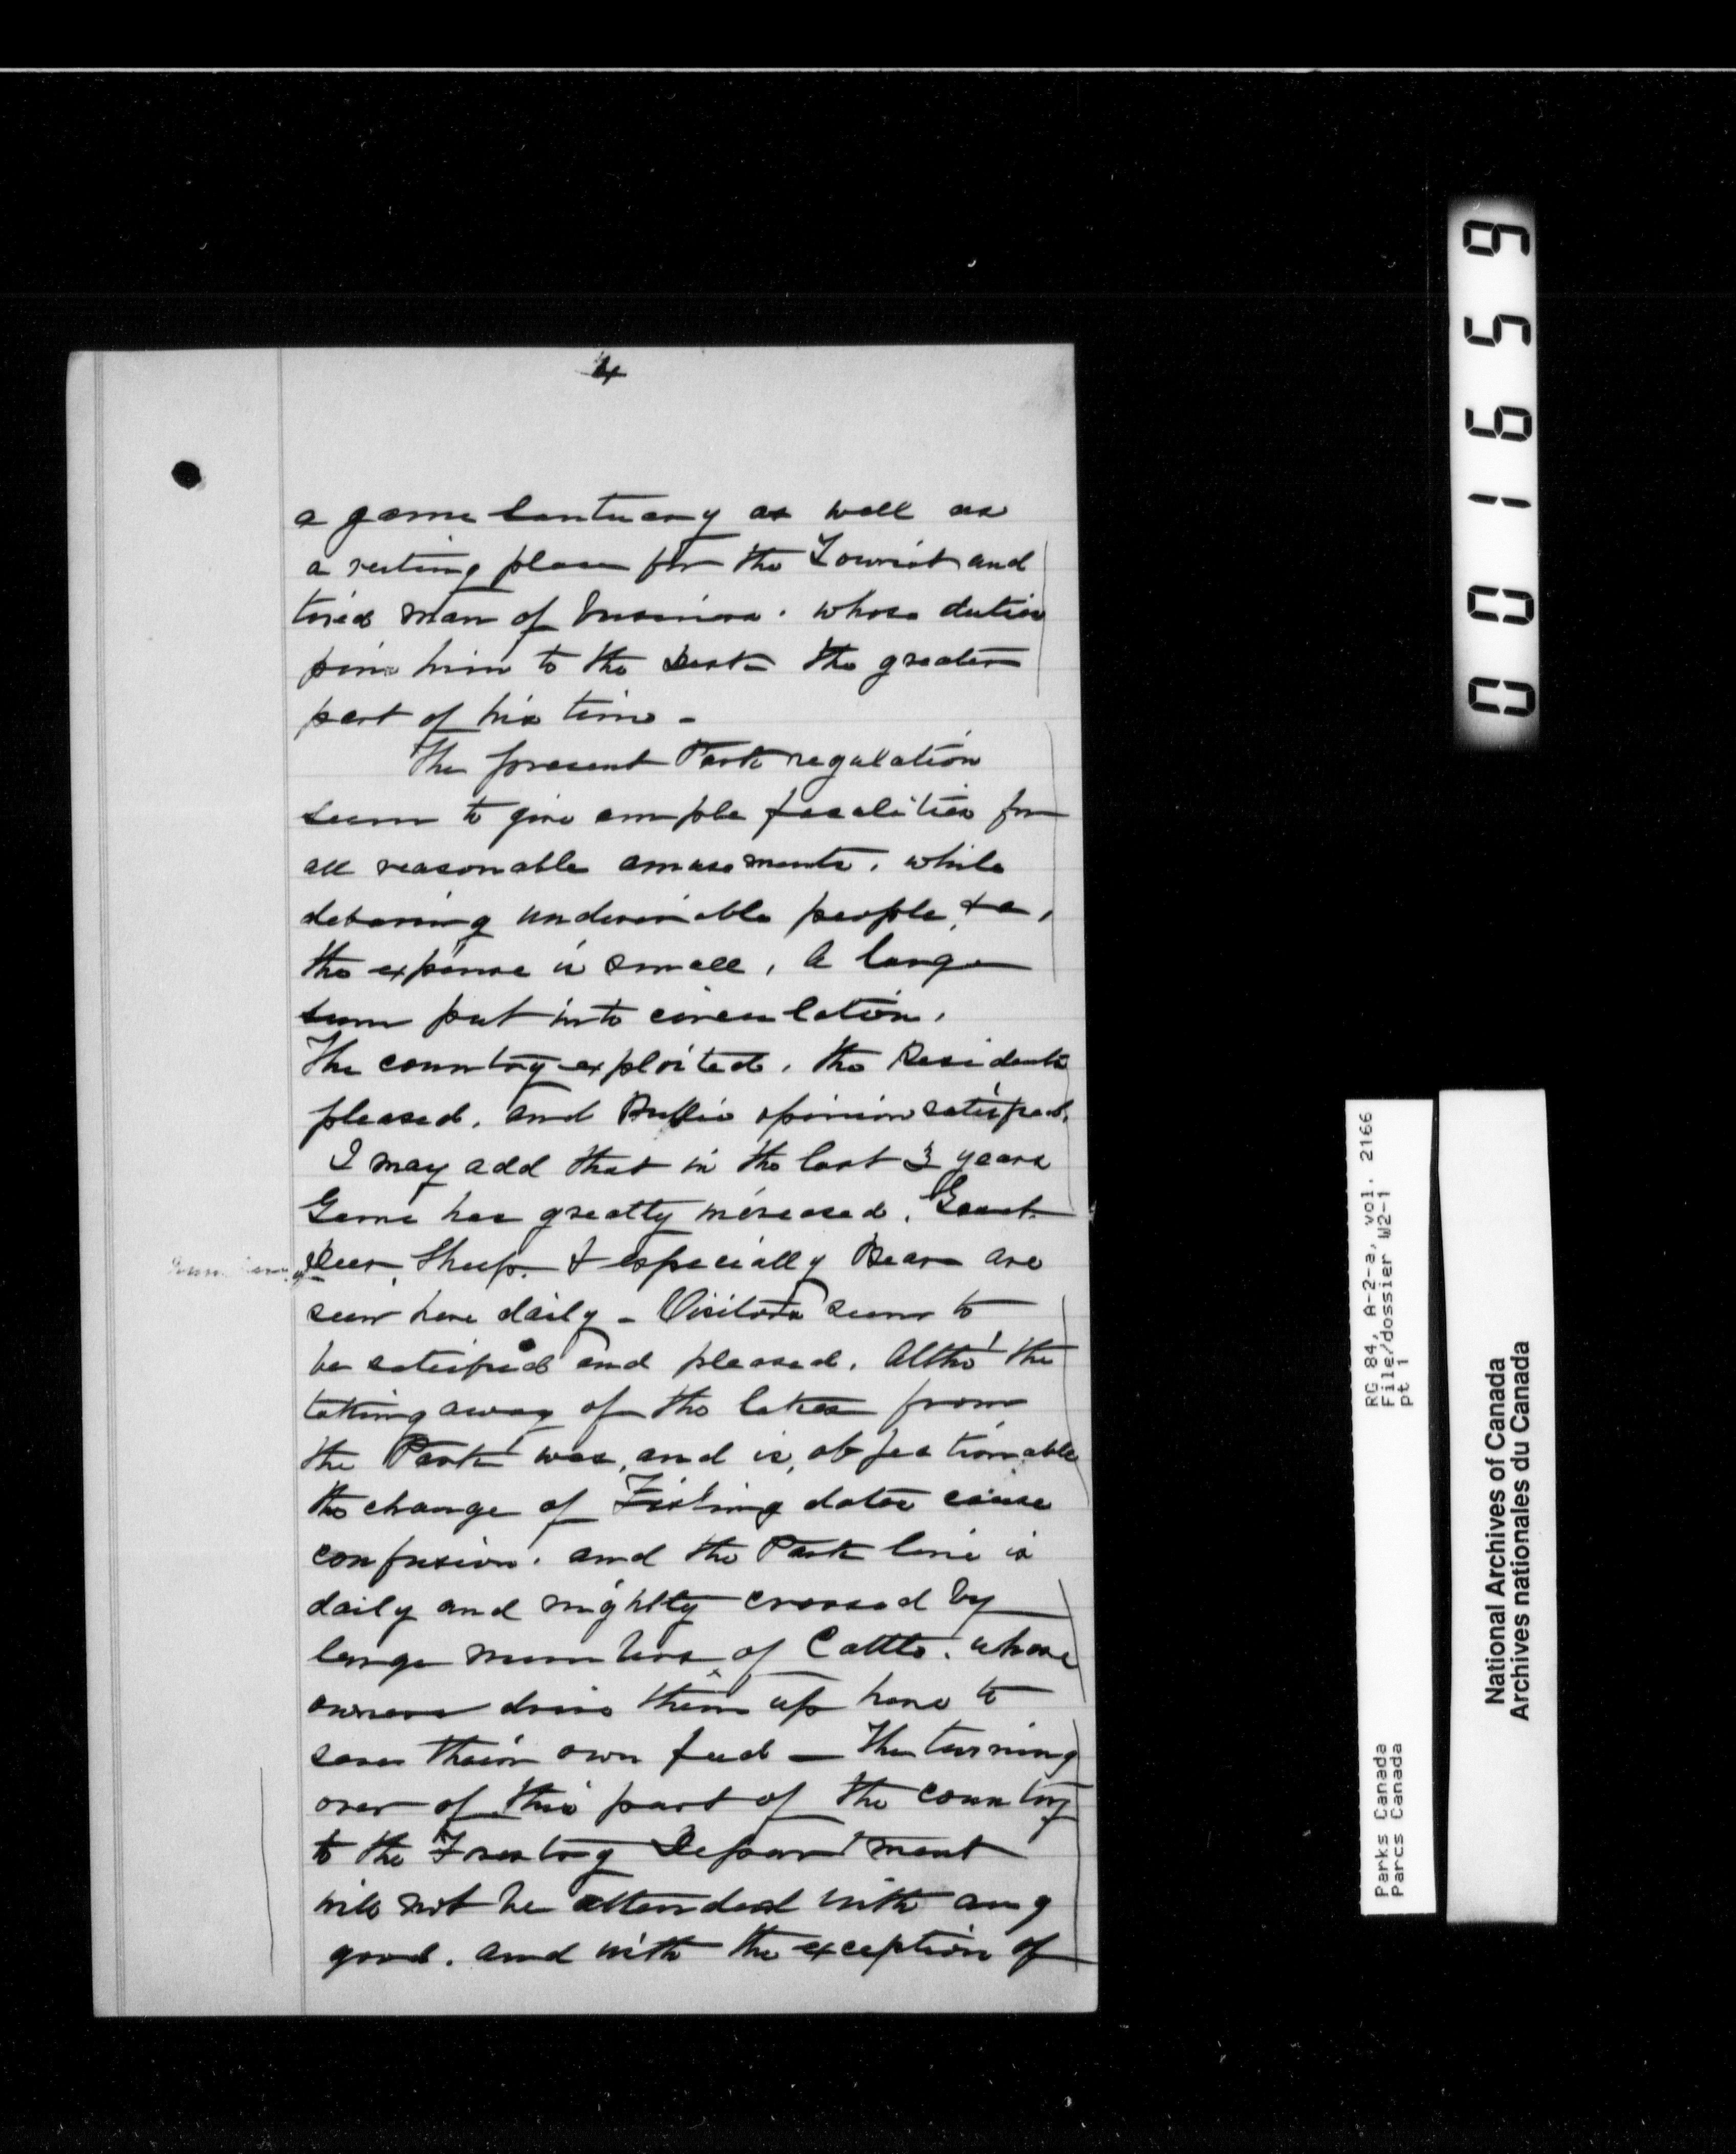 4
a game Santuary as well as
a resting place for the Tourist and
tired man of business. whose duties
pins him to the Desk the greater
part of his time -
The present Park regulation
seem to give ample facalities for
all reasonable amusements, while
debaring undesirable people,
the expense is small, a large
sum put into circulation,
The country exploited, the Residents
pleased, and Public opinion satisfied.
I may add that in the last 3 years
Game has greatly increased, Goat
Deer, Sheep, & especially Bear are
seen here daily - Visitors seem to
be satisfied and pleased. Altho' the
taking away of the lakes from
the Park was, and is, objectionable
the change of Fishing dates cause
confusion. and the Park line is
daily and nightly crossed by
large numbers of Cattle. whose
owners drive them up here to
save their own feed — The turning
over of this part of the country
to the Forestry Department
will not be attended with any
good. and with the exception of
001659
RG 84, A-2-a, vol. 2166
File/dossier W2-1
pt 1
Parks Canada
Parcs Canada
National Archives of Canada
Archives nationales du Canada